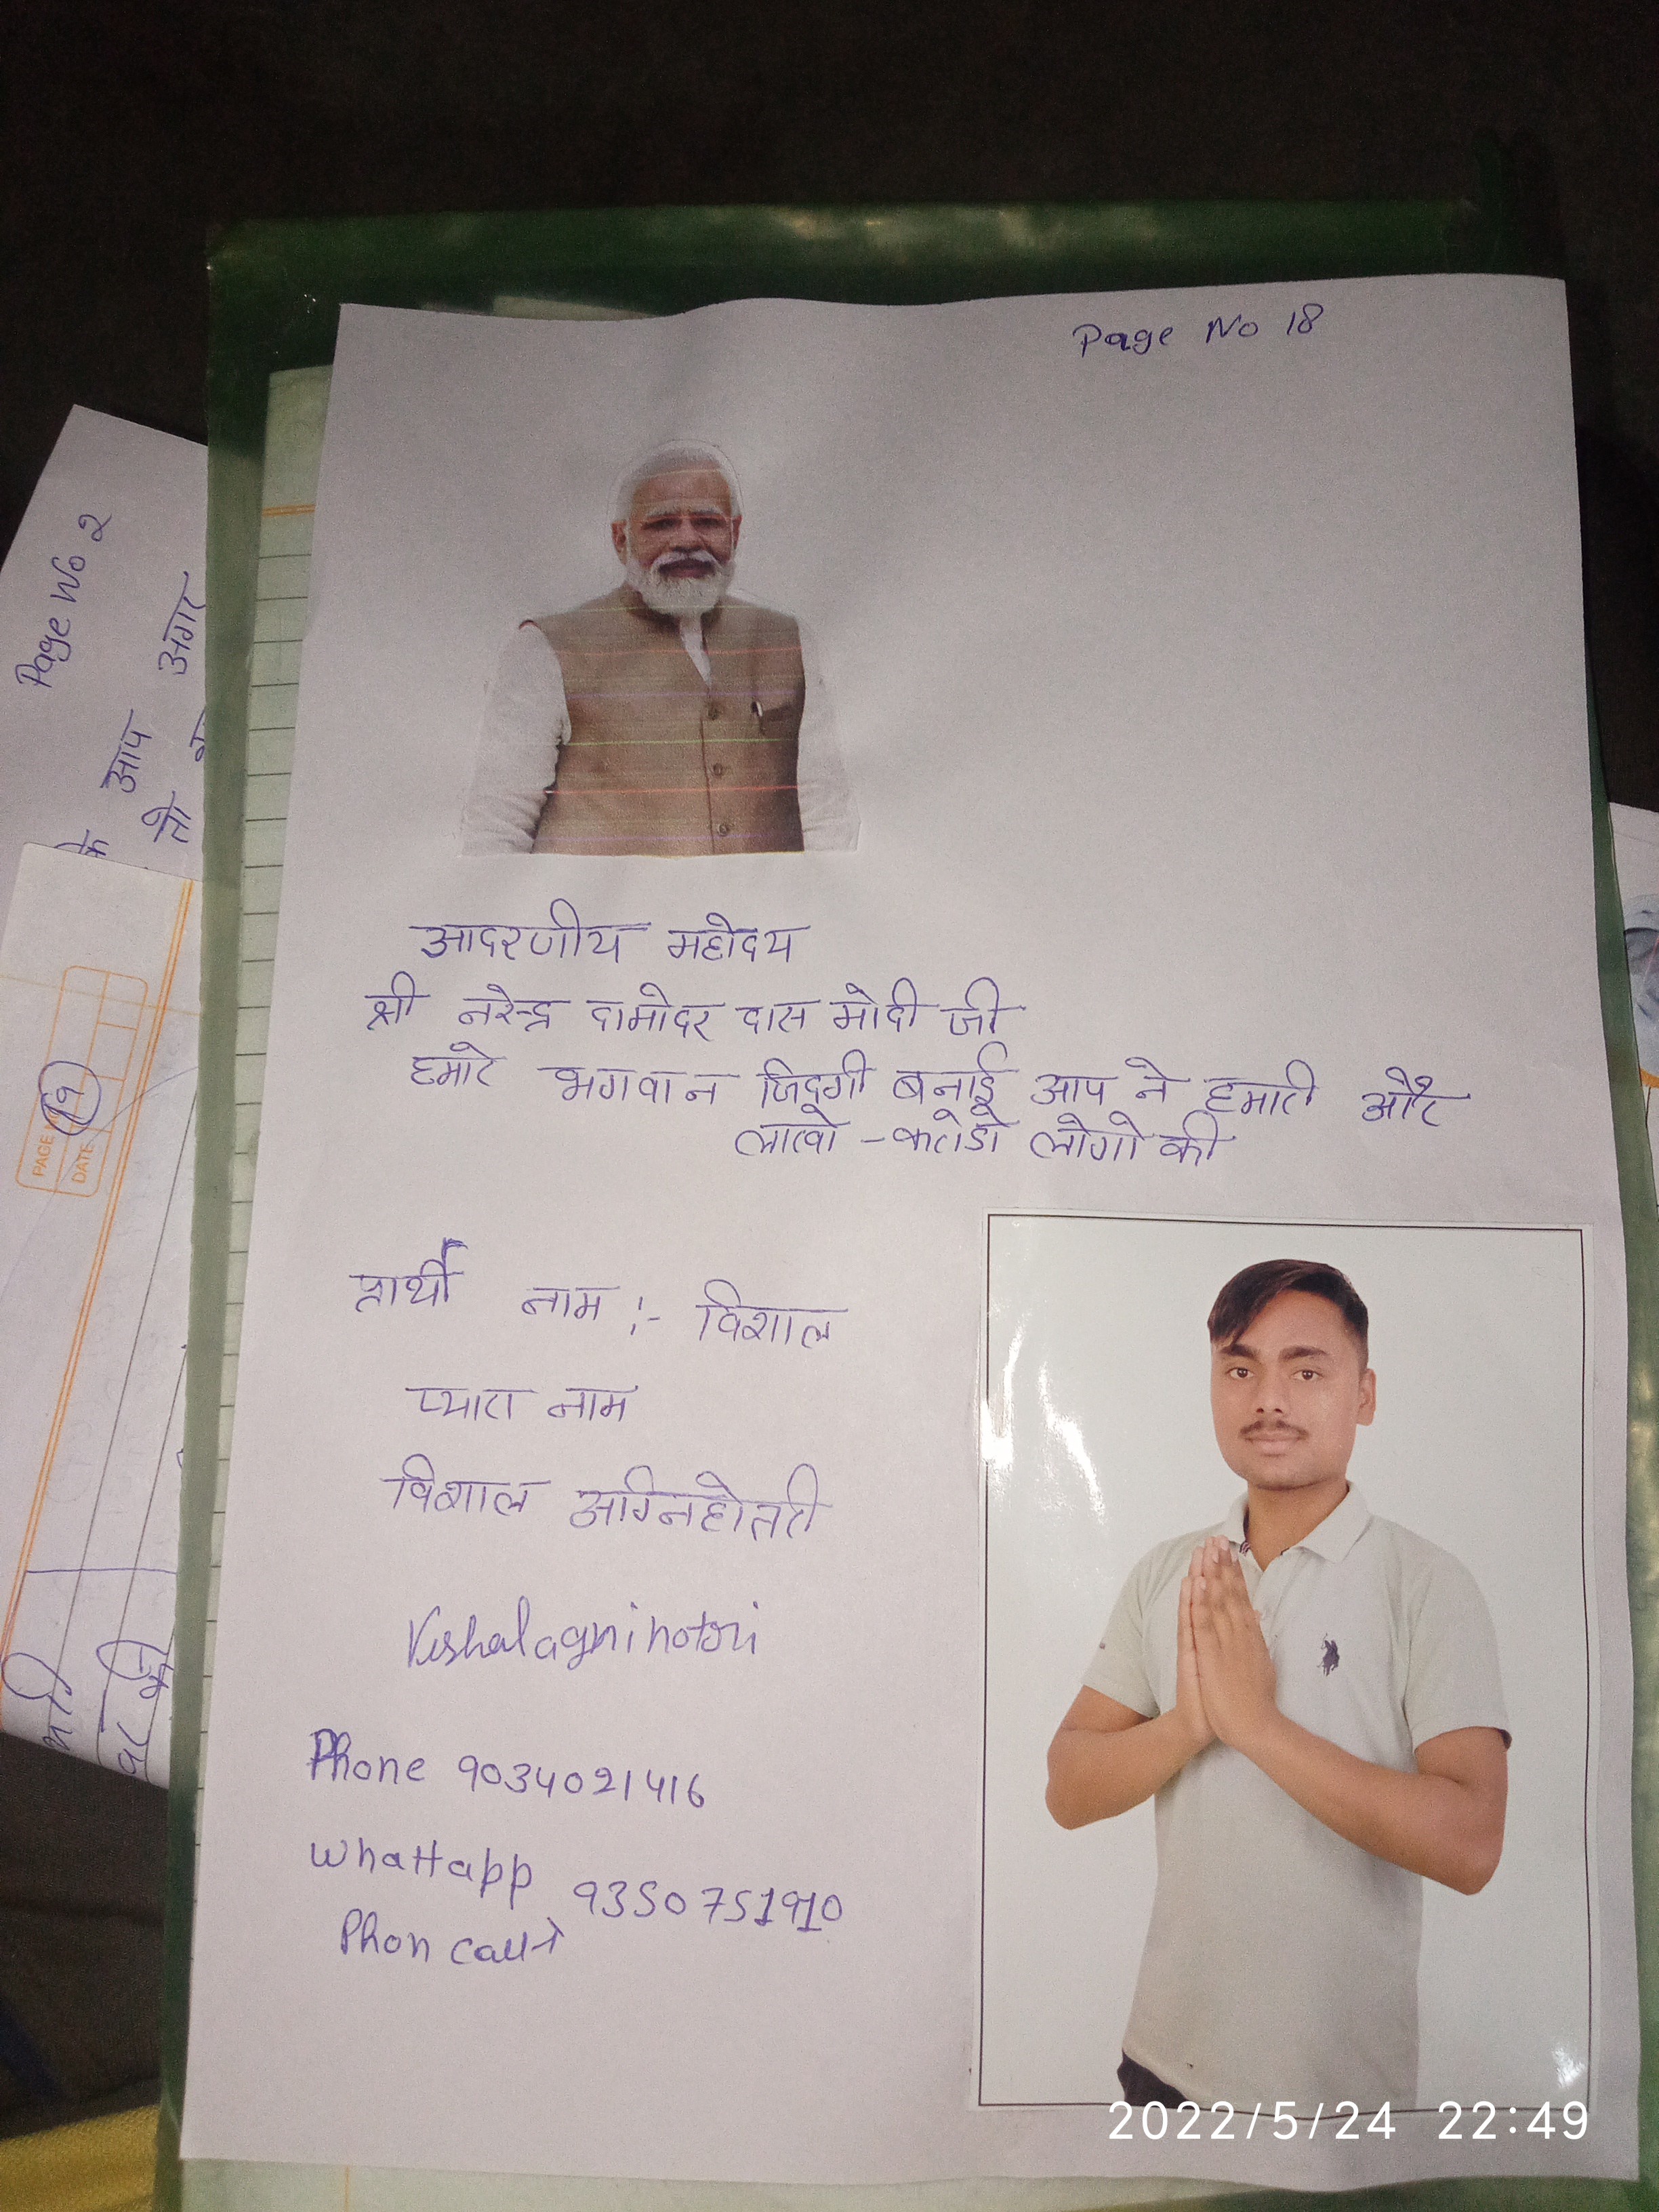 Page No 18
आदरणीय महोदय
श्री नरेन्द्र दामोदर दास मोदी जी
हमारे भगवान जिदगी बनाई आप ने हमारी और
लाखो - करोडो लोगो की
प्रार्थी नाम :- विशाल
प्यारा नाम
विशाल अग्निहोतरी
Vishal agnihotri
Phone 9034021416
Whattapp 9350751910
Phon call→
Page No 2
आप
अगर
तो
के
PAGE
DATE
2022/5/24 22:49